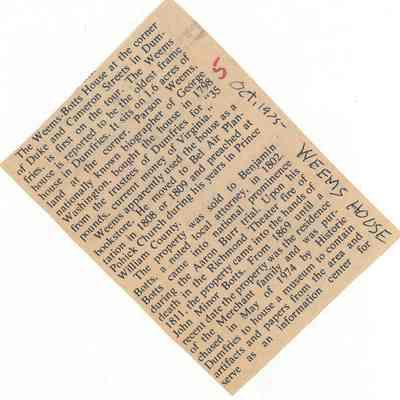 The Weems-Botts House at the corner
of Duke and Cameron Streets in Dum-
fries is first on the tour. The Weems
house is reported to be the oldest frame
house in Dumfries, sits on 16 acres of
land at the corner. Parson Weems,
nationally known biographer of George
Washington, bought the house in 1798
from the trustees of Dumfries for "35
pounds, current money of Virginia."
Weems apparently used the house as a
bookstore. He moved to Bel Air Plan-
tation in 1808 or 1809 and preached at
Pohick Church during his years in Prince
William County.
The property was sold to Benjamin
Botts, a noted local attorney, in 1802.
Botts came into national prominence
during the Aaron Burr trial. Upon his
death in the Richmond Theater fire of
1811, the property came into the hands of
John Minor Botts. From 1869 until a
recent date the property was the residence
of the Merchant family and was pur-
chased in May of 1974 by Historic
Dumfries to house a museum to contain
artifacts and papers from the area and
serve as an information center for
5
OCT. 1975
WEEMS HOUSE